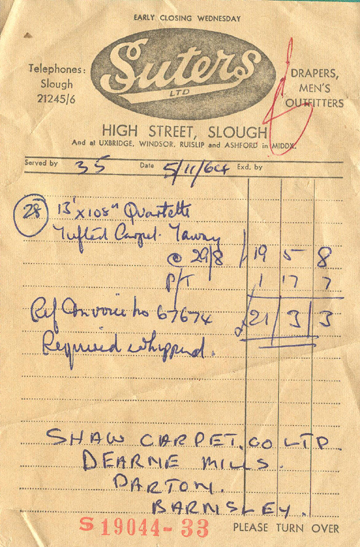 EARLY CLOSING WEDNESDAY
Telephones:
Slough
21245/6
Suters
LTD
DRAPERS,
MEN'S
OUTFITTERS
HIGH STREET, SLOUGH
And at UXBRIDGE, WINDSOR, RUISLIP and ASHFORD in MIDDX.
Served by 35 Date 5/11/64 Exd. by
28 13' x 108" Quartette
Tufted Carpet. Tawny
@ 29/8 19 5 8
P/T 1 17 7
Ref Invoice No 67674 £21 3 3
Required whipped.
SHAW CARPET. CO LTD.
DEARNE MILLS.
DARTON.
BARNSLEY.
S 19044-33
PLEASE TURN OVER